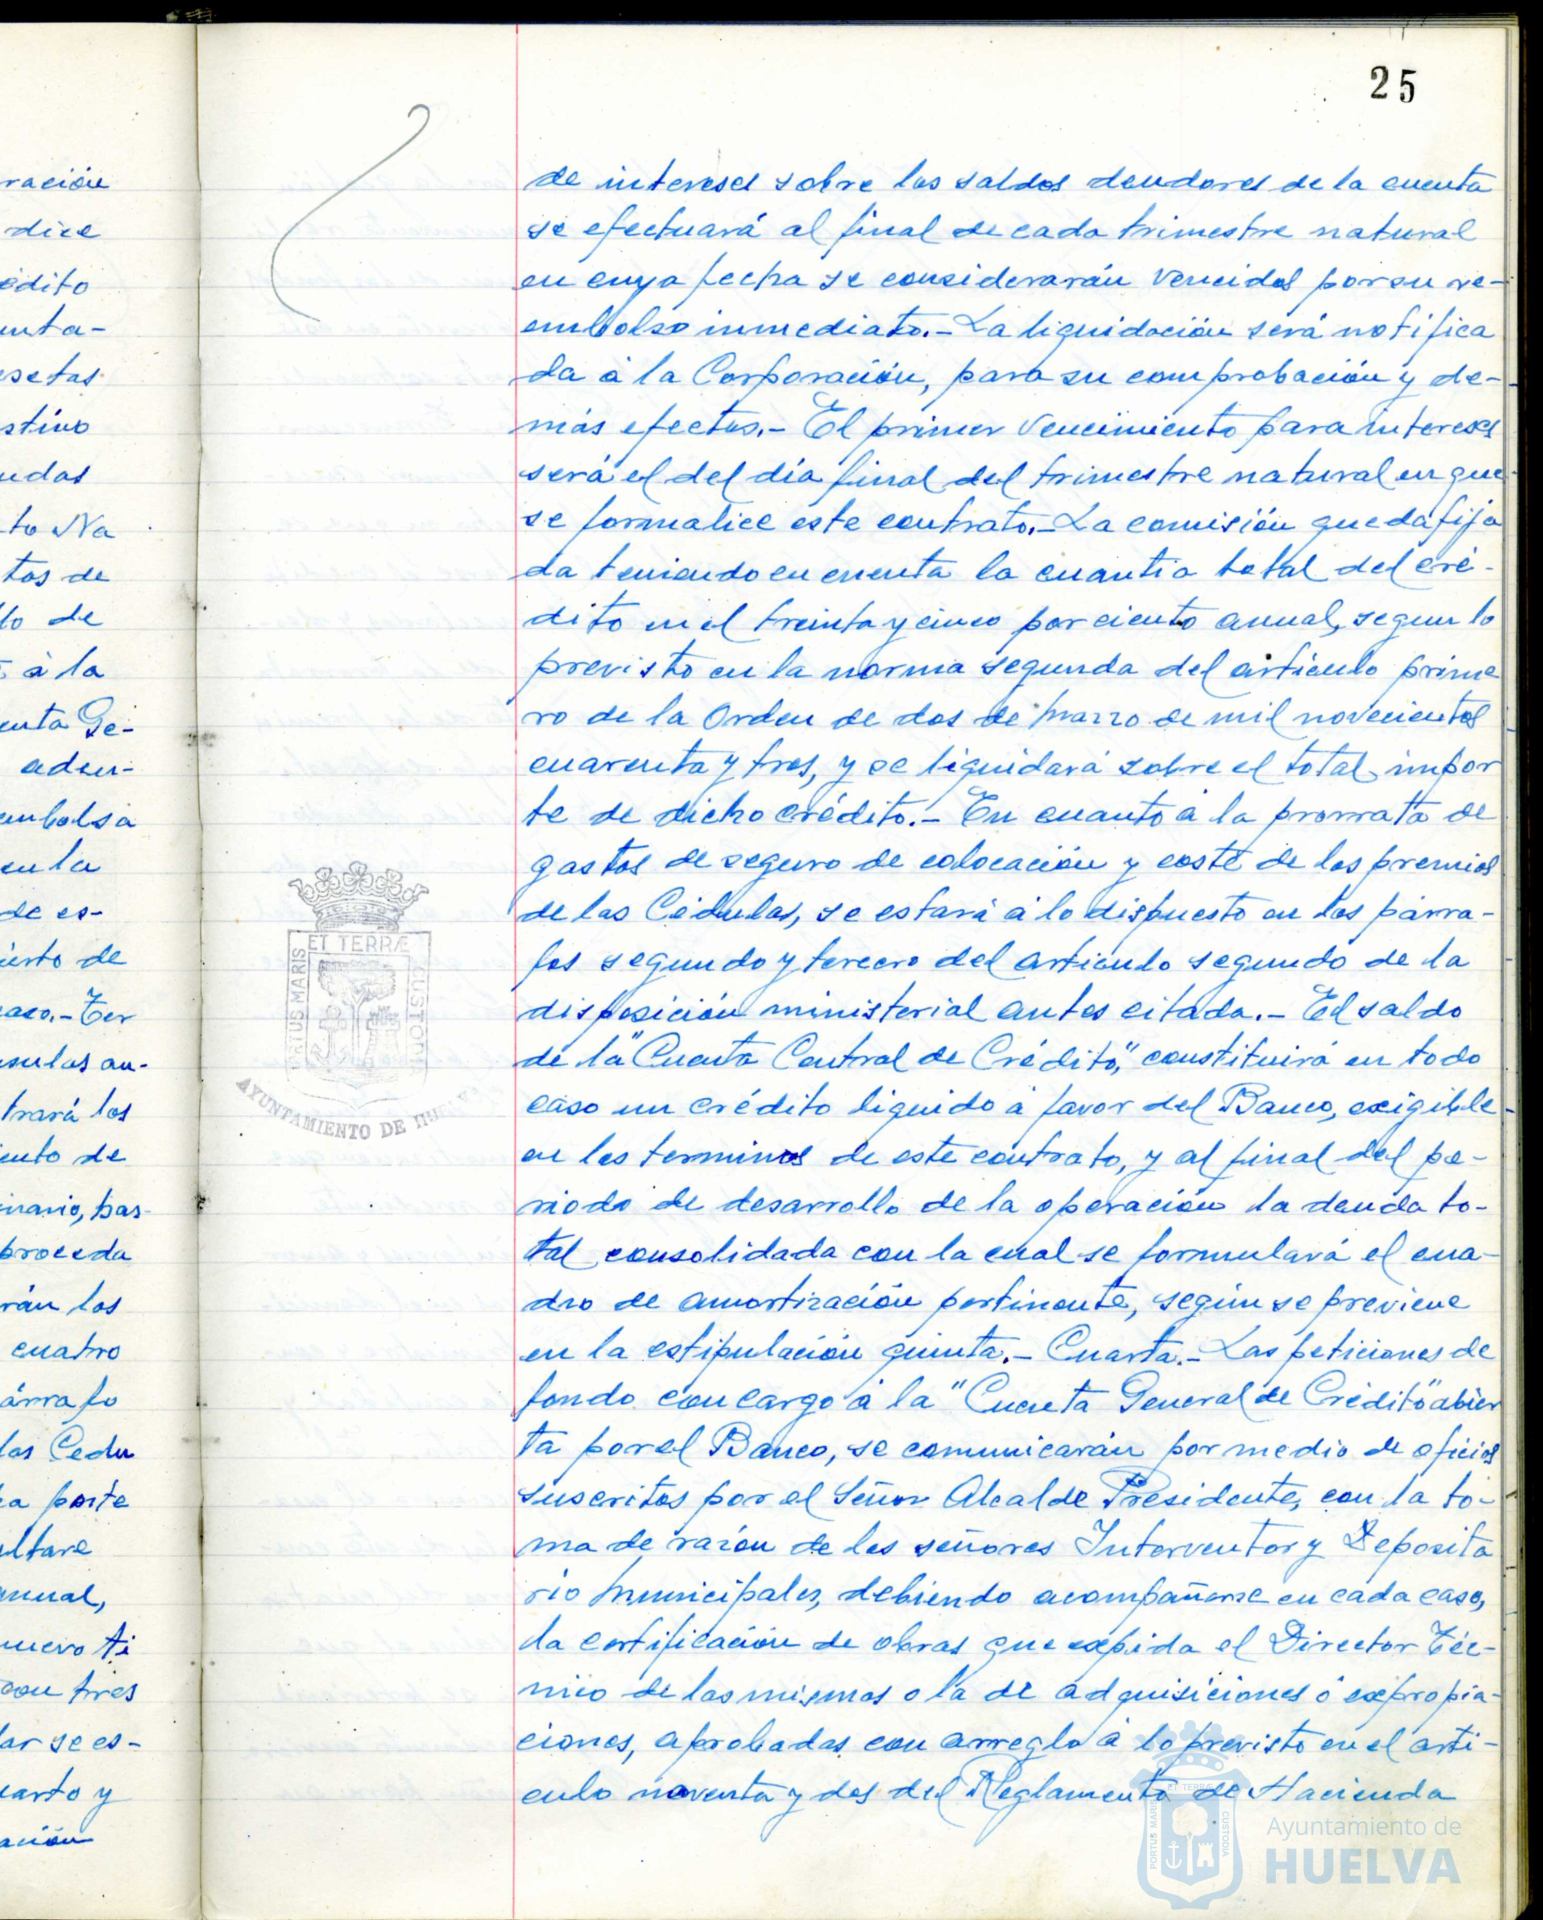 25
ración
dice
édito
unta-
esetas
stivo
udas
to Na
tos de
lo de
à la
enta Ge-
aden-
embolsa
en la
de es-
ierto de
caso.- Ter
sulas an-
trará los
iento de
inario, tras-
proceda
rán los
cuatro
árrafo
las Cedu
a parte
ultare
anual,
nuevo ti
con tres
lar se es-
uarto y
ación
de intereses sobre los saldos deudores de la cuenta
se efectuará al final de cada trimestre natural
en cuya fecha se considerarán vencidos por su re-
embolso inmediato.- La liquidación será notifica
da à la Corporación, para su comprobación y de-
más efectos.- El primer vencimiento para intereses
será el del día final del trimestre natural en que
se formalice este contrato.- La comisión queda fija
da teniendo en cuenta la cuantia total del cré-
dito en el treinta y cinco por ciento anual, segun lo
previsto en la norma segunda del articulo prime
ro de la Orden de dos de marzo de mil novecientos
cuarenta y tres, y se liquidará sobre el total impor
te de dicho crédito.- En cuanto à la prorrata de
gastos de seguro de colocación y coste de los premios
de las Cédulas, se estará à lo dispuesto en los párra-
fos segundo y tercero del articulo segundo de la
disposición ministerial antes citada.- El saldo
de la "Cuenta Central de Crédito", constituirá en todo
caso un crédito liquido à favor del Banco, exigible
en los terminos de este contrato, y al final del pe-
riodo de desarrollo de la operación la deuda to-
tal consolidada con la cual se formulará el cua-
dro de amortización pertinente, según se previene
en la estipulación quinta.- Cuarta.- Las peticiones de
fondo con cargo à la "Cuenta General de Crédito" abier
ta por el Banco, se comunicarán por medio de oficios
suscritos por el Señor Alcalde Presidente, con la to-
ma de razón de los señores Interventor y Deposita
rio municipales, debiendo acompañarse en cada caso,
la certificación de obras que expida el Director Téc-
nico de las mismas o la de adquisiciones ó expropia-
ciones, aprobadas con arreglo à lo previsto en el arti-
culo noventa y dos del Reglamento de Hacienda
PORTUS MARIS
ET TERRÆ
CUSTODIA
AYUNTAMIENTO DE HUELVA
PORTUS MARIS
ET TERRÆ
CUSTODIA
Ayuntamiento de
HUELVA